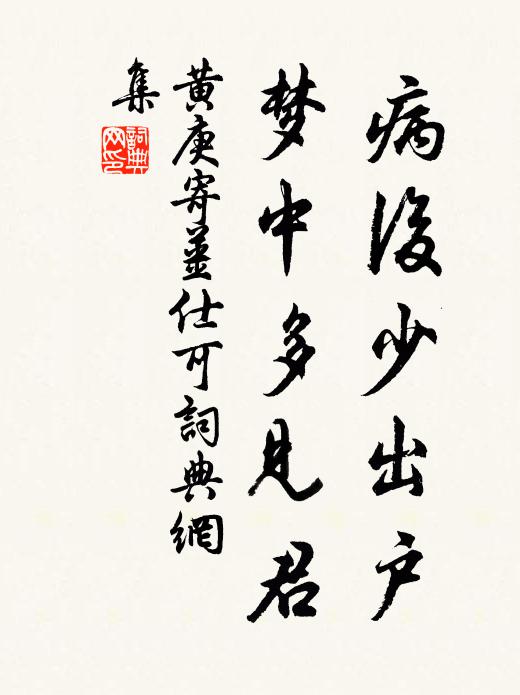 病後少出户
梦中多见君
黄庚寄姜仕可詞典網
集
詞典网印